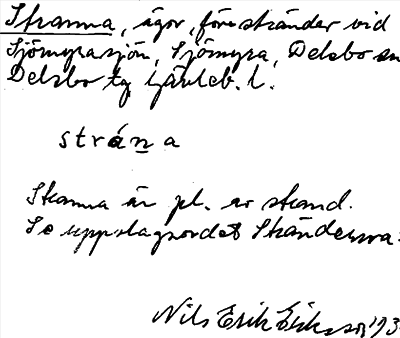 Stranna, ägor, före stränder vid
Sjömyrasjön, Sjömyra, Delsbo sn
Delsbo tg Gävleb. l.
strána
Stranna är pl. av strand.
Se uppslagsordet Ständerna:
Nils Erik Eriksson 193